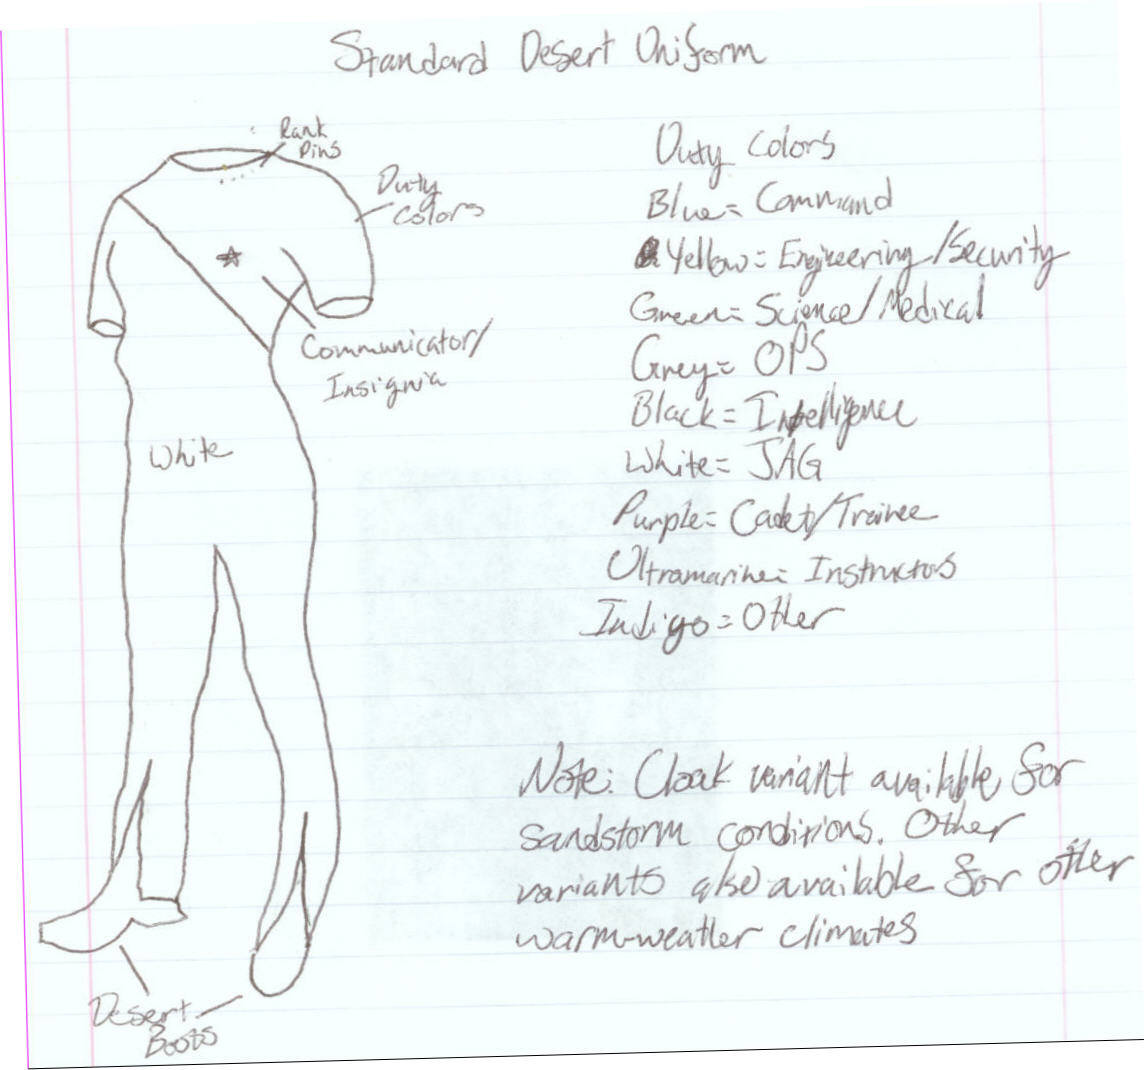 Standard Desert Uniform
Rank
Pins
Duty
Colors
Communicator/
Insignia
White
Desert
Boots
Duty Colors
Blue= Command
Yellow= Engineering/Security
Green= Science/Medical
Grey= OPS
Black= Intelligence
White= JAG
Purple= Cadet/Trainee
Ultramarine= Instructors
Indigo= Other
Note: Cloak variant available for
sandstorm conditions. Other
variants also available for other
warm-weather climates